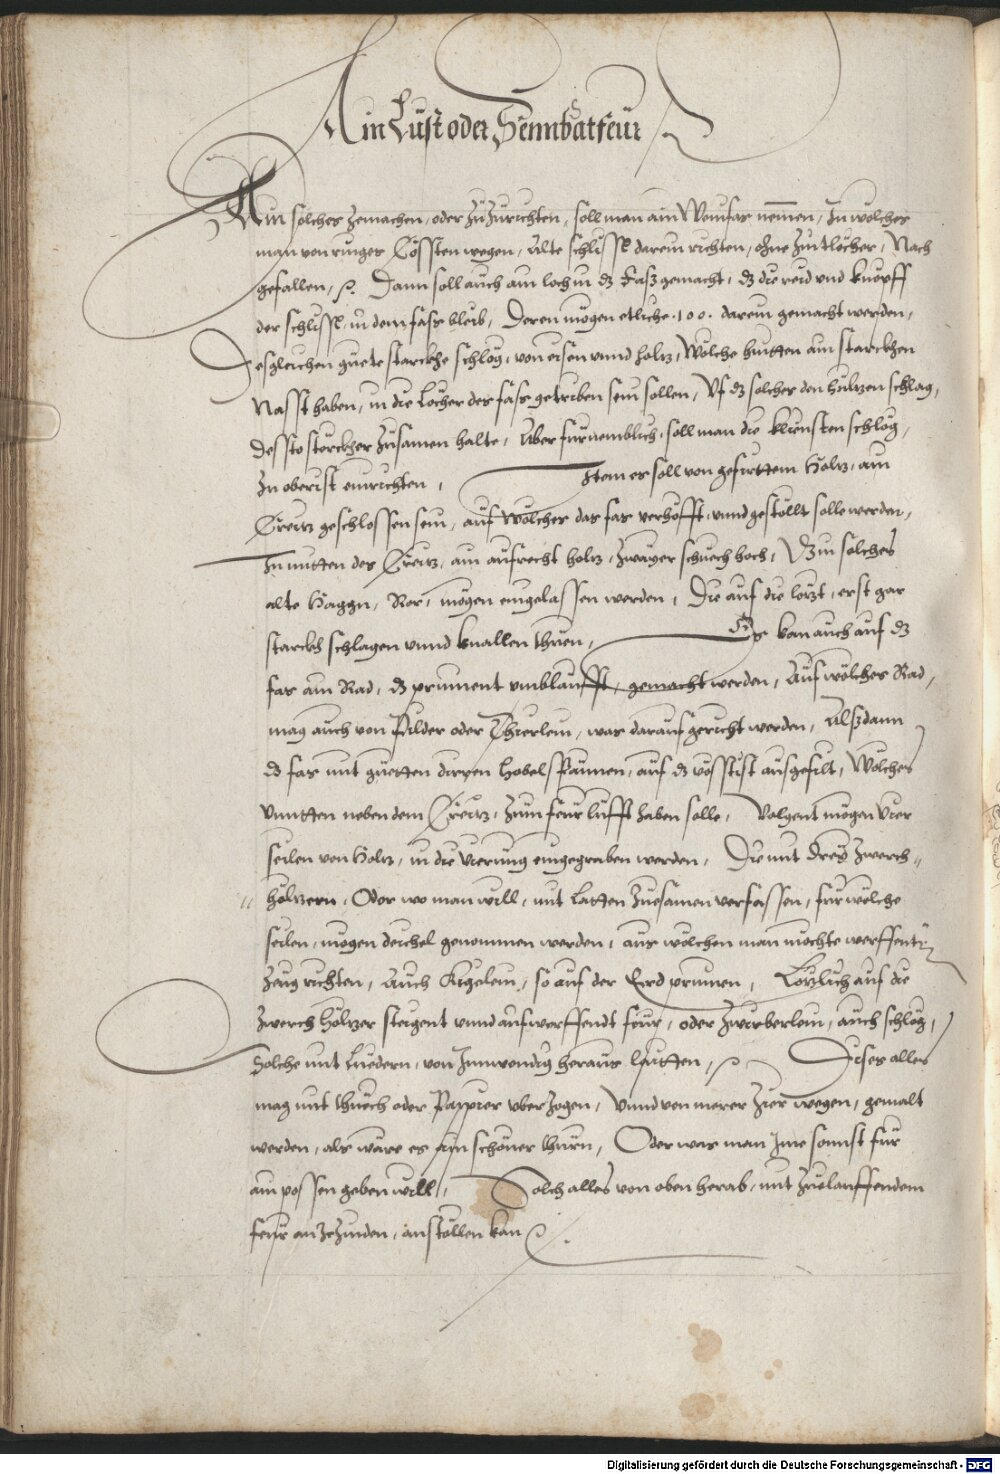 Ain Lust oder Sennbatfeür
Ain solches zemachen, oder zuzurichten, soll man ain Weinfas nemen, In wölches
man von ringes Cossten wegen, Alte schlüssl darein richten, ohne Zintlöcher, Nach
gefallen, Dann soll auch ain loch in dz Fasz gemacht, dz die reid und knöpff
der schlüssl, in dem fass bleib, Deren mögen etliche .100. darein gemacht werden,
Desgleichen guete starckhe schlög, von eisen unnd holtz, Wölche hintten ain starckhen
Nasst haben, in die Löcher des fass getriben sein sollen, Uf dz solches den hültzen schlag,
dessto störckher zusamen halte, Aber fürnemblich, soll man die klienssten schlög,
Zu oberist einrichten, Item es soll von gefirttem Holtz, ain
Creitz geschlossen sein, auf wölches das fas verhöfft, unnd gestöllt solle werden,
In mitten des Creitz, ain aufrecht holtz, zwayer schuech hoch, In solches
alte Haggn, Ror, mögen eingelassen werden, Die auf die lötzt, erst gar
starckh schlagen unnd knallen thuen, Es kan auch auf dz
fas ain Rad, dz prinnent umblaufft, gemacht werden, Auf wölches Rad,
mag auch von Pilder oder Thierlein, was darauf gericht werden, Alszdann
dz fas mit guetten dirren Hobelspännen, auf dz vösstist ausgefilt, Wölches
unntten neben dem Creitz, zum feür lufft haben solle, Volgent mögen Vier
seilen von Holtz, in die Vierung eingegraben werden, Die mit drey zwerch-
höltzern, Oder wo man will, mit Latten zuesamen verfassen, für wölche
seilen, mögen deichel genommen werden, aus wölchen man möchte werffent
Zeug richten, Auch Kigelein, so auf der Erd prinnen, Lötzlich auf die
zwerch höltzer steigent unnd aufwerffendt feür, oder zwirberlein, auch schlög,
Solche mit Luedern, von Innwendig heraus Dises alles
mag mit thuech oder Pappier uberzogen, Unnd von merer zier wegen, gemalt
werden, als wäre es ain schöner thurn, Oder was man Ime sonnst für
ain possen geben will, Solch alles von oben herab, mit zuelauffendem
feür anzezinden, anstöllen kan
Digitalisierung gefördert durch die Deutsche Forschungsgemeinschaft - DFG